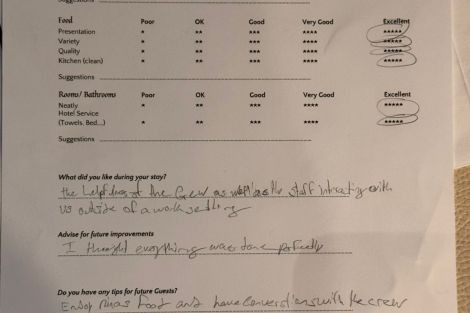 Suggestions
Food Poor OK Good Very Good Excellent
Presentation * ** *** **** *****
Variety * ** *** **** *****
Quality * ** *** **** *****
Kitchen (clean) * ** *** **** *****
Suggestions
Rooms/ Bathrooms Poor OK Good Very Good Excellent
Neatly * ** *** **** *****
Hotel Service
(Towels, Bed....) * ** *** **** *****
Suggestions
What did you like during your stay?
the helpfulness of the Crew as well as the staff interacting with
us outside of a work setting
Advise for future improvements
I thought everything was done perfectly
Do you have any tips for future Guests?
Enjoy food and have conversations with the crew